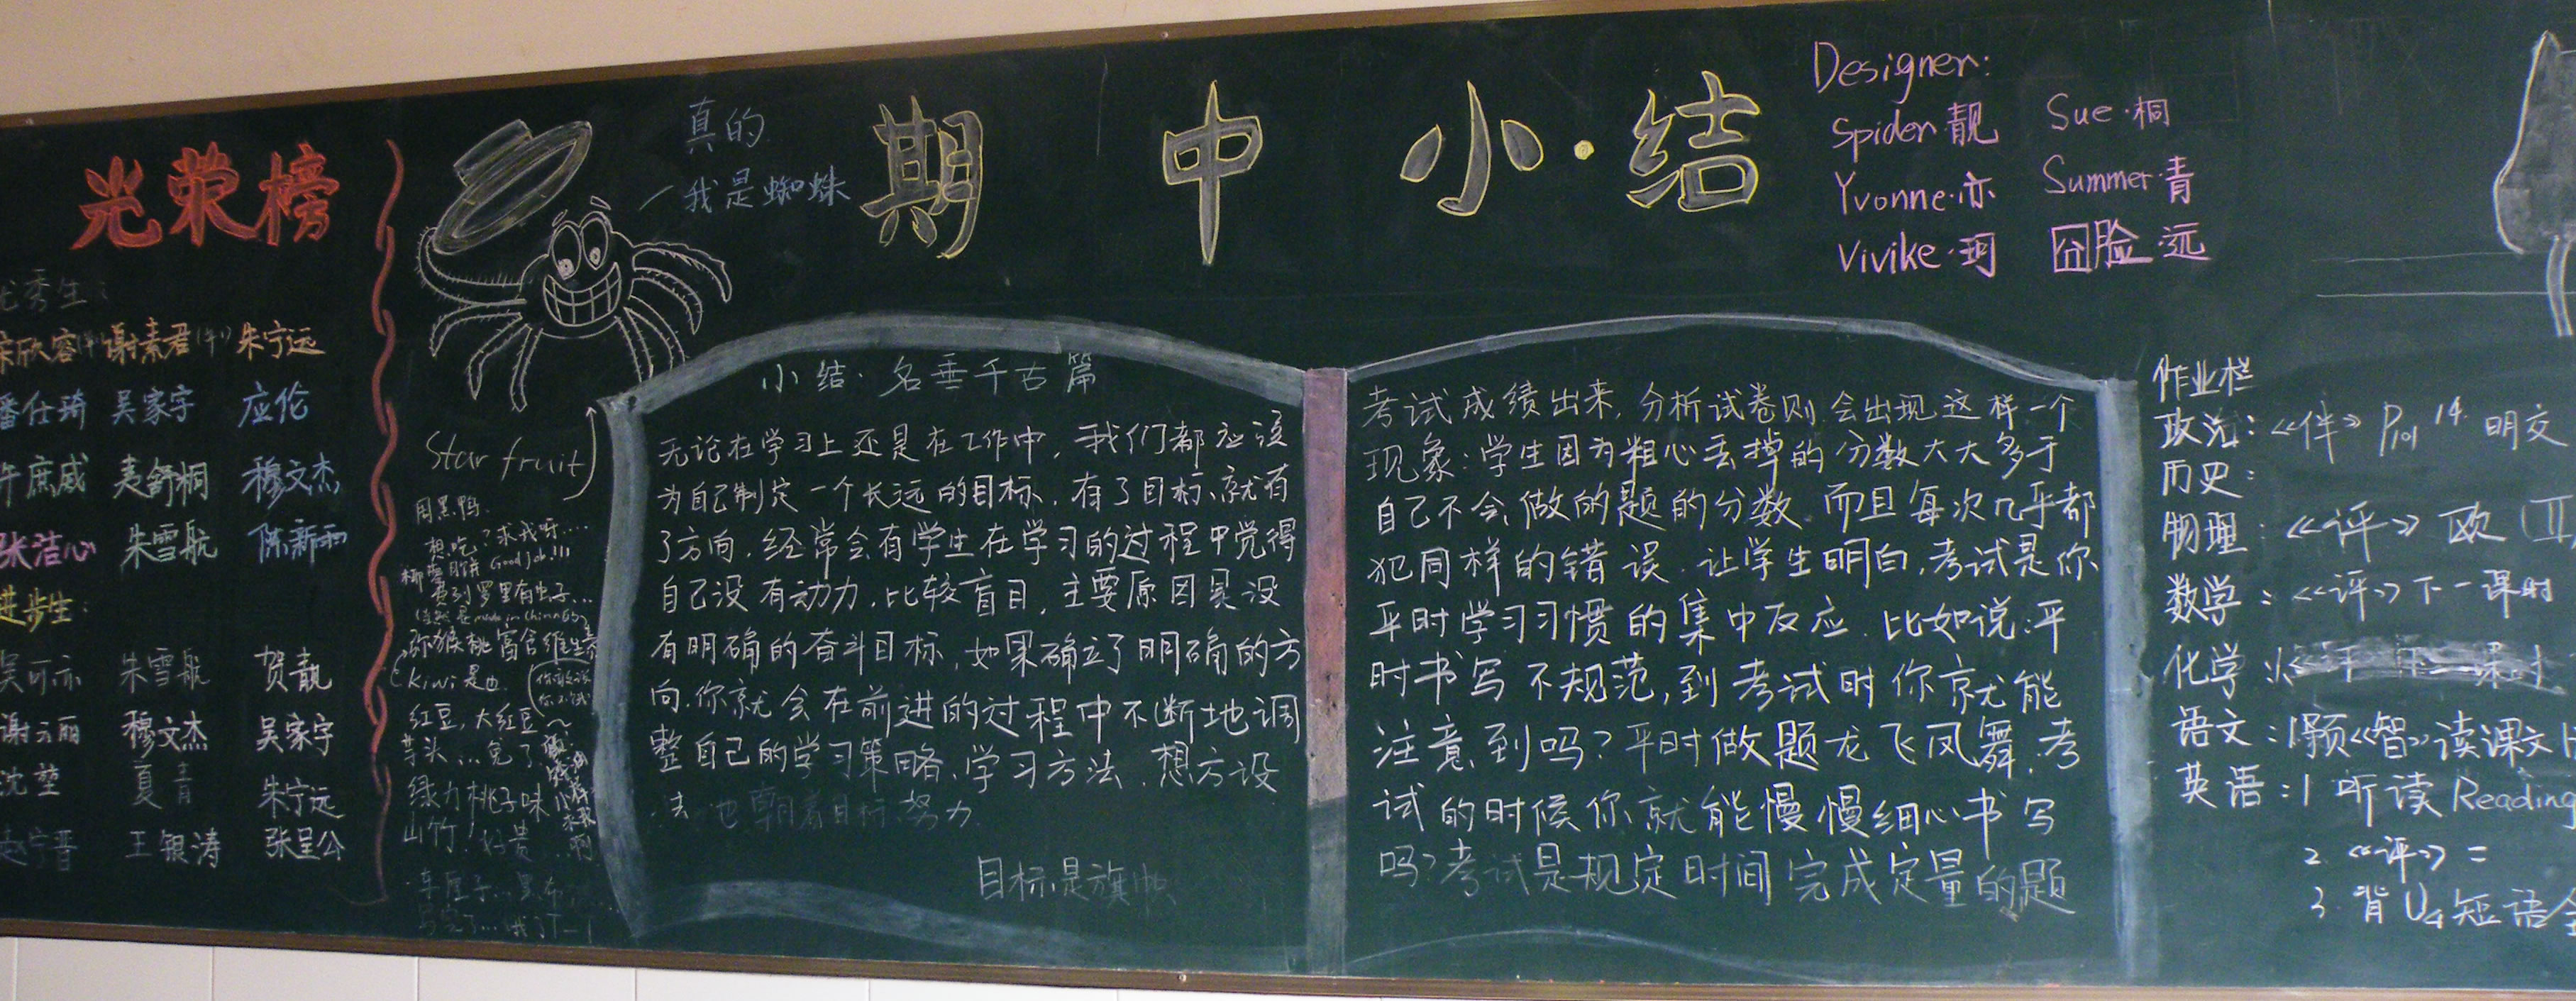 光荣榜
秀生:
欣容 谢素君 朱宁远
潘仕琦 吴家宇 应伦
许庶威 夏舒桐 穆文杰
张洁心 朱雪航 陈新雨
进步生:
吴可亦 朱雪航 贺靓
谢云丽 穆文杰 吴家宇
沈堃 夏青 朱宁远
赵宁晋 王银涛 张呈公
真的
我是蜘蛛
期中小·结
Designer:
Spider·靓 Sue·桐
Yvonne·亦 Summer·青
Vivike·珂 囧脸·远
Star fruit
周黑鸭.
想吃?求我呀....
椰蓉月饼 Good job!!!
费列罗里有虫子...
猕猴桃富含维生素
Kiwi是也.
红豆,大红豆
芋头...免了
绿力桃子味
山竹!好贵
车厘子...
小结·名垂千古篇
无论在学习上还是在工作中,我们都应该
为自己制定一个长远的目标,有了目标,就有
了方向.经常会有学生在学习的过程中觉得
自己没有动力,比较盲目,主要原因是没
有明确的奋斗目标,如果确立了明确的方
向.你就会在前进的过程中不断地调
整自己的学习策略、学习方法,想方设
法 也朝着目标努力
目标是旗帜
考试成绩出来,分析试卷则会出现这样一个
现象:学生因为粗心丢掉的分数大大多于
自己不会做的题的分数.而且每次几乎都
犯同样的错误.让学生明白,考试是你
平时学习习惯的集中反应.比如说:平
时书写不规范,到考试时你就能
注意到吗?平时做题龙飞凤舞,考
试的时候你就能慢慢细心书写
吗?考试是规定时间完成定量的题
作业栏
政治:《伴》P101 14. 明交
历史:
物理:《评》欧(II)
数学:《评》下一课时
化学:
语文:1.预《智》读课文
英语:1 听读Reading
2.《评》=
3.背U4短语